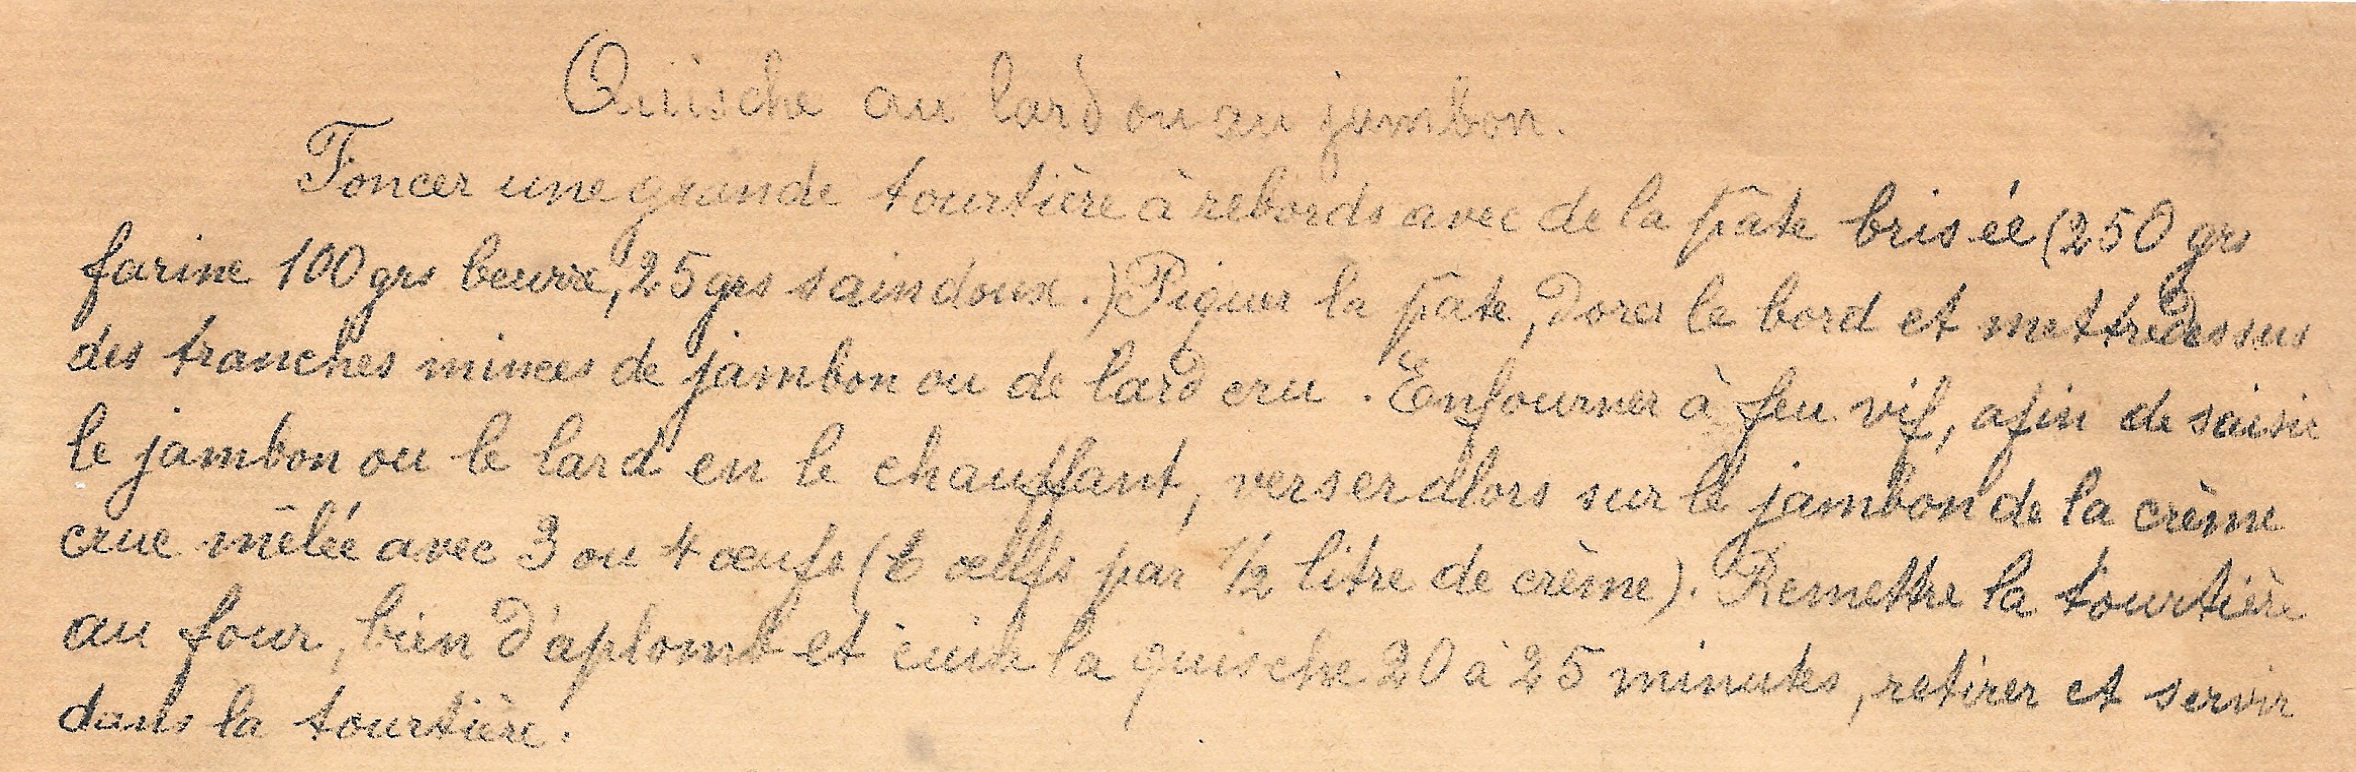 Quische au lard ou au jambon.
Foncer une grande tourtière à rebords avec de la pâte brisée (250 grs
farine 100 grs beurre, 25 grs saindoux.) Piquer la pâte, dorer le bord et mettre dessus
des tranches minces de jambon ou de lard cru. Enfourner à feu vif, afin de saisir
le jambon ou le lard en le chauffant, verser alors sur le jambon de la crème
crue mêlée avec 3 ou 4 œufs ( œufs par 1/2 litre de crème). Remettre la tourtière
au four, bien d'aplomb et cuire la quische 20 à 25 minutes, retirer et servir
dans la tourtière.